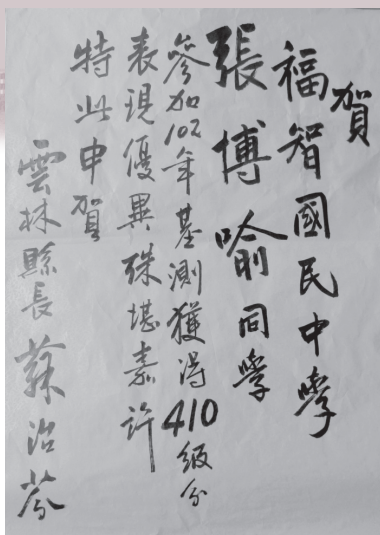 賀
福智國民中學
張博喻同學
參加102年基測獲得410級分
表現優異殊堪嘉許
特此申賀
雲林縣長蘇治芬